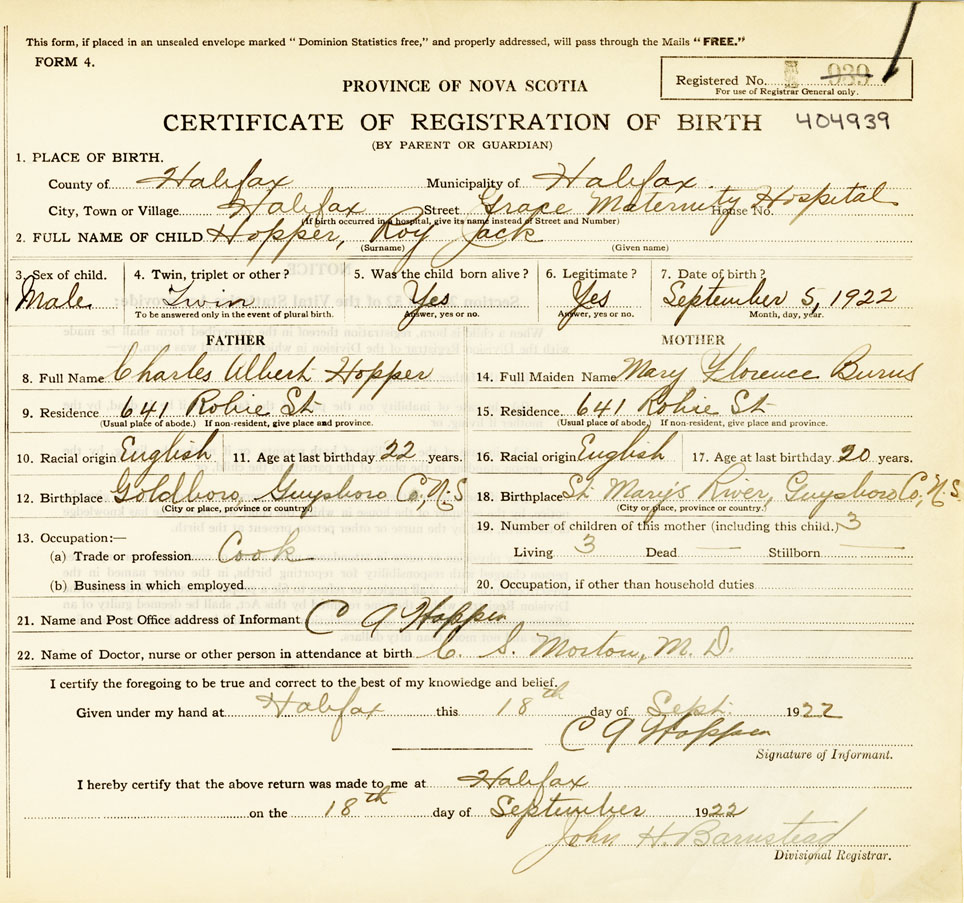 This form, if placed in an unsealed envelope marked “ Dominion Statistics free,” and properly addressed, will pass through the Mails “ FREE.”
FORM 4.
Registered No. 939
For use of Registrar General only.
PROVINCE OF NOVA SCOTIA
CERTIFICATE OF REGISTRATION OF BIRTH 404939
(BY PARENT OR GUARDIAN)
1. PLACE OF BIRTH.
County of Halifax Municipality of Halifax
City, Town or Village Halifax Street Grace Maternity Hospital House No.
(If birth occurred in a hospital, give its name instead of Street and Number)
2. FULL NAME OF CHILD Hopper, Roy Jack
(Surname) (Given name)
3. Sex of child. 4. Twin, triplet or other? 5. Was the child born alive? 6. Legitimate? 7. Date of birth?
Male Twin Yes Yes September 5, 1922
To be answered only in the event of plural birth. Answer, yes or no. Answer, yes or no. Month, day, year.
FATHER MOTHER
8. Full Name Charles Albert Hopper 14. Full Maiden Name Mary Florence Burns
9. Residence 641 Robie St 15. Residence 641 Robie St
(Usual place of abode.) If non-resident, give place and province. (Usual place of abode.) If non-resident, give place and province.
10. Racial origin English 11. Age at last birthday 22 years. 16. Racial origin English 17. Age at last birthday 20 years.
12. Birthplace Goldboro, Guysboro Co, N.S 18. Birthplace St. Mary's River, Guysboro Co, N.S.
(City or place, province or country) (City or place, province or country.)
19. Number of children of this mother (including this child.) 3
13. Occupation:—
Living 3 Dead — Stillborn —
(a) Trade or profession Cook
(b) Business in which employed 20. Occupation, if other than household duties
21. Name and Post Office address of Informant C A Hopper
22. Name of Doctor, nurse or other person in attendance at birth C. S. Morton, M. D.
I certify the foregoing to be true and correct to the best of my knowledge and belief.
Given under my hand at Halifax this 18th day of Sept. 1922
C A Hopper
Signature of Informant.
I hereby certify that the above return was made to me at Halifax
on the 18th day of September 1922
John H. Barnstead
Divisional Registrar.